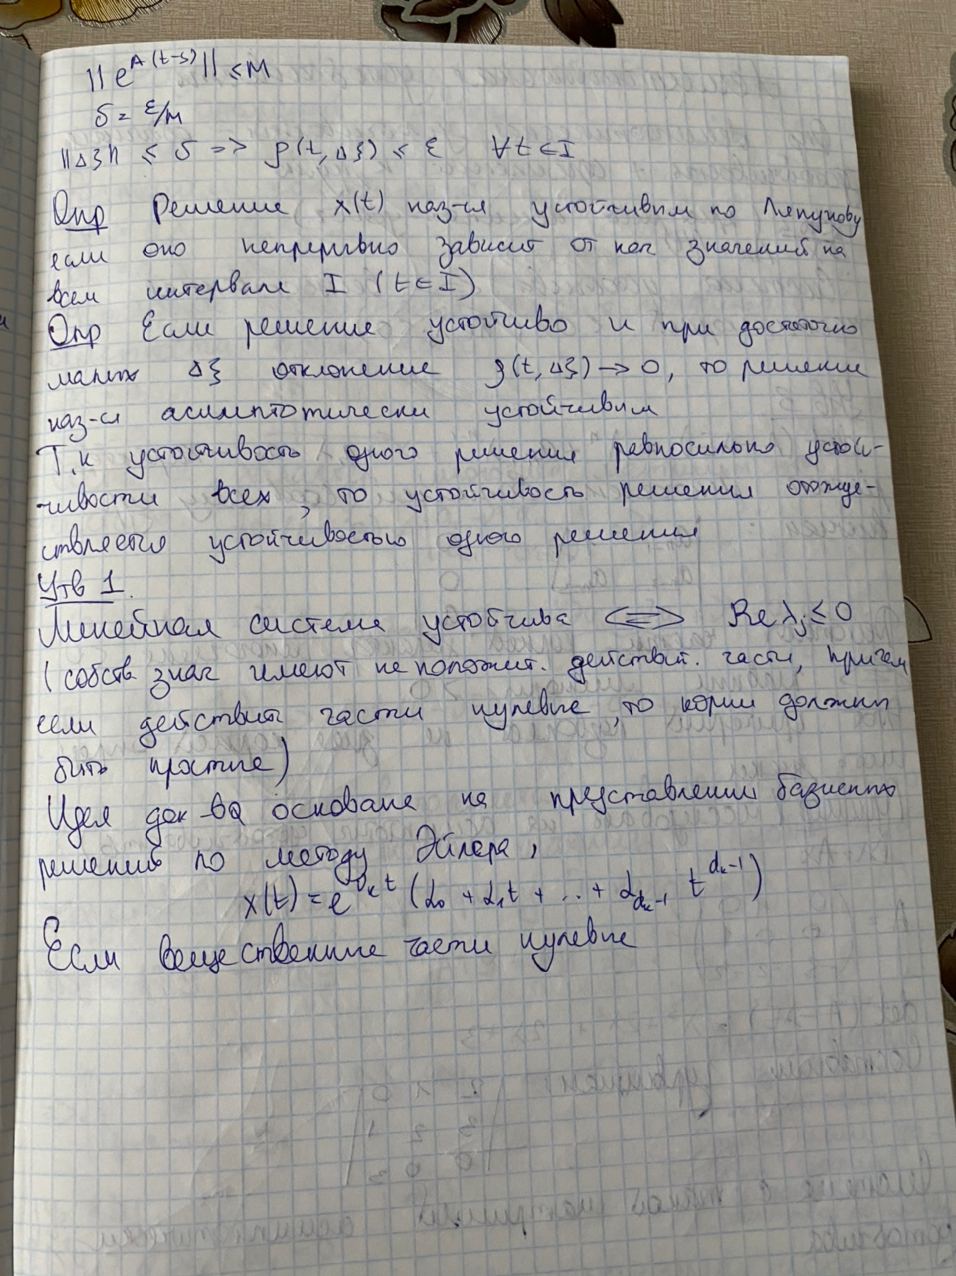 ||e^{A(t-s)}|| ≤ M
δ = ε/M
||Δξ|| ≤ δ => ρ(t, Δξ) ≤ ε ∀t ∈ I
Опр Решение x(t) наз-ся устойчивым по Ляпунову
если оно непрерывно зависит от нач значений на
всем интервале I (t ∈ I)
Опр Если решение устойчиво и при достаточно
малых Δξ отклонение ρ(t, Δξ) → 0, то решение
наз-ся асимптотически устойчивым
Т.к устойчивость одного решения равносильно устой-
чивости всех, то устойчивость решения отожде-
ствляется устойчивостью одного решения
Утв 1.
Линейная система устойчива <=> Re λj ≤ 0
(собств знач имеют не положит. действит. части, причем
если действит части нулевые, то корни должны
быть простые)
Идея док-ва основана на представлении базисных
решений по методу Эйлера,
x(t) = e^{λ_k t} (α₀ + α₁t + .. + α_{d_k-1} t^{d_k-1})
Если вещественные части нулевые